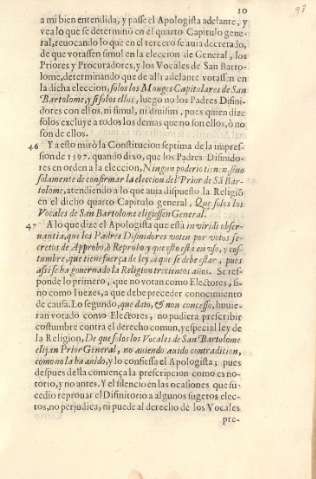 10
98
a mi bien entendida, y passe el Apologista adelante, y
vea lo que se determinò en el quarto Capitulo gene-
ral, reuocando lo que en el tercero se auia decretado,
de que votassen simul en la eleccion de General, los
Priores y Procuradores, y los Vocales de San Barto-
lome, determinando que de alli adelante votassen en
la dicha eleccion, solos los Monges Capitulares de San
Bartolome, y si solos ellos, luego no los Padres Difini-
dores con ellos, ni simul, ni diuisim, pues quien dize
solos excluye a todos los demas que no son ellos, ò no
son de ellos.
46 Y a esto mirò la Constitucion septima de la impres-
sion de 1597. quando dixo, que los Padres Difinido-
res en orden a la eleccion, Ningun poder tienen, sino
solamente de confirmar la eleccion del Prior de Sã Bar-
tolome, atendiendo a lo que auia dispuesto la Religiõ
en el dicho quarto Capitulo general, Que solos los
Vocales de San Bartolome eligiessen General.
47 A lo que dize el Apologista que està in viridi obser-
uantia, que los Padres Difinidores voten por votos se-
cretos de Approbo, ò Reprobo y que esto està en vso, y cos-
tumbre, que tiene fuerça de ley, a que se debe estar, pues
assi se ha gouernado la Religion trecientos años. Se res-
ponde lo primero, que no votan como Electores, si-
no como Iuezes, a que debe preceder conocimiento
de causa. Lo segundo, que dato, & non concesso, huuie-
ran votado como Electores, no pudiera prescribir
costumbre contra el derecho comun, y especial ley de
la Religion, De que solos los Vocales de San Bartolome
elijan Prior General, no auiendo auido contradiccion,
como no la ha auido, y lo confiessa el Apologista; pues
despues della comiença la prescripcion como es no-
torio, y no antes. Y el silencio en las ocasiones que su-
cedio reprouar el Difinitorio a algunos sugetos elec-
tos, no perjudica, ni puede al derecho de los Vocales
pre-